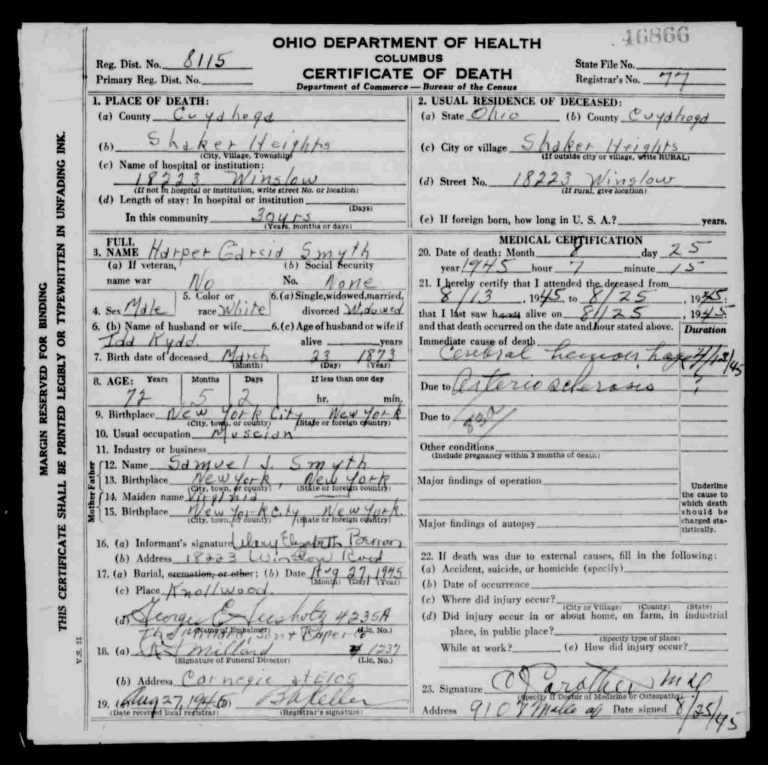 46866
OHIO DEPARTMENT OF HEALTH
COLUMBUS
CERTIFICATE OF DEATH
Department of Commerce — Bureau of the Census
Reg. Dist. No. 8115
Primary Reg. Dist. No.
State File No.
Registrar's No. 77
MARGIN RESERVED FOR BINDING
THIS CERTIFICATE SHALL BE PRINTED LEGIBLY OR TYPEWRITTEN IN UNFADING INK.
V.S. 11
1. PLACE OF DEATH:
(a) County Cuyahoga
(b) Shaker Heights
(City, Village, Township)
(c) Name of hospital or institution:
18223 Winslow
(If not in hospital or institution, write street No. or location)
(d) Length of stay: In hospital or institution
(Days)
In this community 30yrs
(Years, months or days)
2. USUAL RESIDENCE OF DECEASED:
(a) State Ohio (b) County Cuyahoga
(c) City or village Shaker Heights
(If outside city or village, write RURAL)
(d) Street No. 18223 Winslow
(If rural, give location)
(e) If foreign born, how long in U. S. A.? years.
3. FULL NAME Harper Garcia Smyth
(a) If veteran, name war No
(b) Social Security No. None
4. Sex Male
5. Color or race White
6. (a) Single, widowed, married, divorced Widowed
6. (b) Name of husband or wife
Ida Kydd
6. (c) Age of husband or wife if alive years
7. Birth date of deceased March 23 1873
(Month) (Day) (Year)
8. AGE: Years Months Days If less than one day
72 5 2 hr. min.
9. Birthplace New York City New York
(City, town, or county) (State or foreign country)
10. Usual occupation Muscian
11. Industry or business
Father
12. Name Samuel J. Smyth
13. Birthplace New York, New York
(City, town, or county) (State or foreign country)
Mother
14. Maiden name Virginia
15. Birthplace New York City New York
(City, town, or county) (State or foreign country)
16. (a) Informant's signature Mary Elizabeth
(b) Address 18223 Winslow Road
17. (a) Burial, cremation, or other; (b) Date Aug 27, 1945
(Month) (Day) (Year)
(c) Place Knollwood
(d) George E. 4235A
(Name of Embalmer) (Lic. No.)
18. (a) Millard 1237
(Signature of Funeral Director) (Lic. No.)
(b) Address Carnegie at E105
19. (a) Aug 27, 1945 (b) Keller
(Date received local registrar) (Registrar's signature)
MEDICAL CERTIFICATION
20. Date of death: Month 8 day 25
year 1945 hour 7 minute 15
21. I hereby certify that I attended the deceased from
8/13, 1945, to 8/25, 1945;
that I last saw alive on 8/25, 1945
and that death occurred on the date and hour stated above.
Duration
Immediate cause of death
Cerebral hemorrhage 4/13/45
Due to Arteriosclerosis ?
Due to
83a
Other conditions
(Include pregnancy within 3 months of death)
Major findings of operation
Major findings of autopsy
Underline the cause to which death should be charged statistically.
22. If death was due to external causes, fill in the following:
(a) Accident, suicide, or homicide (specify)
(b) Date of occurrence
(c) Where did injury occur?
(City or Village) (County) (State)
(d) Did injury occur in or about home, on farm, in industrial
place, in public place?
(Specify type of place)
While at work? (e) How did injury occur?
23. Signature Carothers
(Specify if Doctor of Medicine or Osteopathy)
Address Date signed 8/25/45